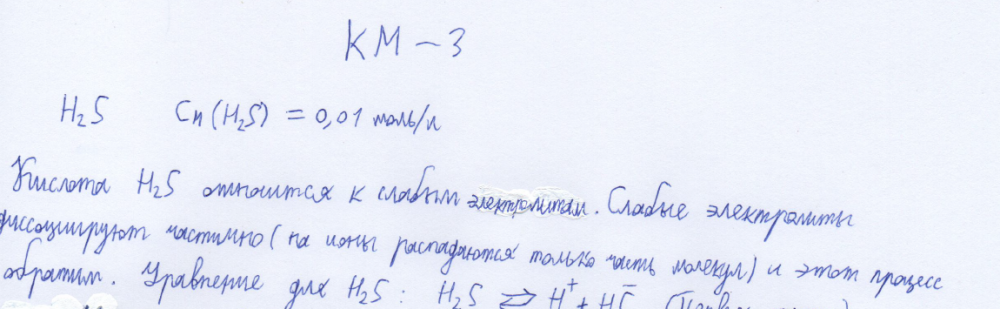 КМ – 3
H₂S Cн(H₂S) = 0,01 моль/л
Кислота H₂S относится к слабым электролитам. Слабые электролиты
диссоциируют частично (на ионы распадаются только часть молекул) и этот процесс
обратим. Уравнение для H₂S: H₂S ⇄ H⁺ + HS⁻